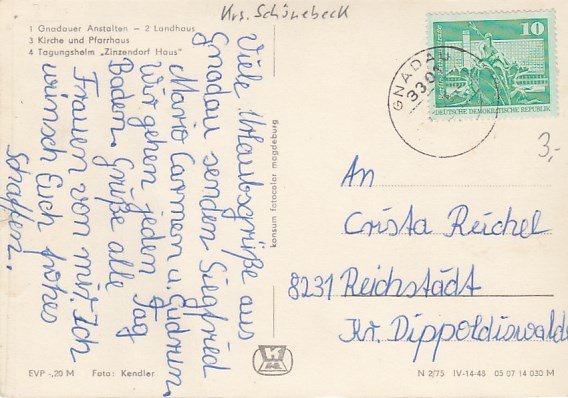 Krs. Schönebeck
1 Gnadauer Anstalten – 2 Landhaus
3 Kirche und Pfarrhaus
4 Tagungsheim „Zinzendorf Haus"
Viele Urlaubsgrüße aus
Gnadau senden Siegfried
Mario Carmen u. Gudrun.
Wir gehen jeden Tag
Baden. Grüße alle
Frauen von mir. Ich
wünsch Euch frohes
Schaffen.
konsum fotocolor magdeburg
EVP -,20 M Foto: Kendler
GNADAU
3301
10
DEUTSCHE DEMOKRATISCHE REPUBLIK
3,-
An
Crista Reichel
8231 Reichstädt
Kr. Dippoldiswalde
N 2/75 IV-14-48 03 07 14 030 M